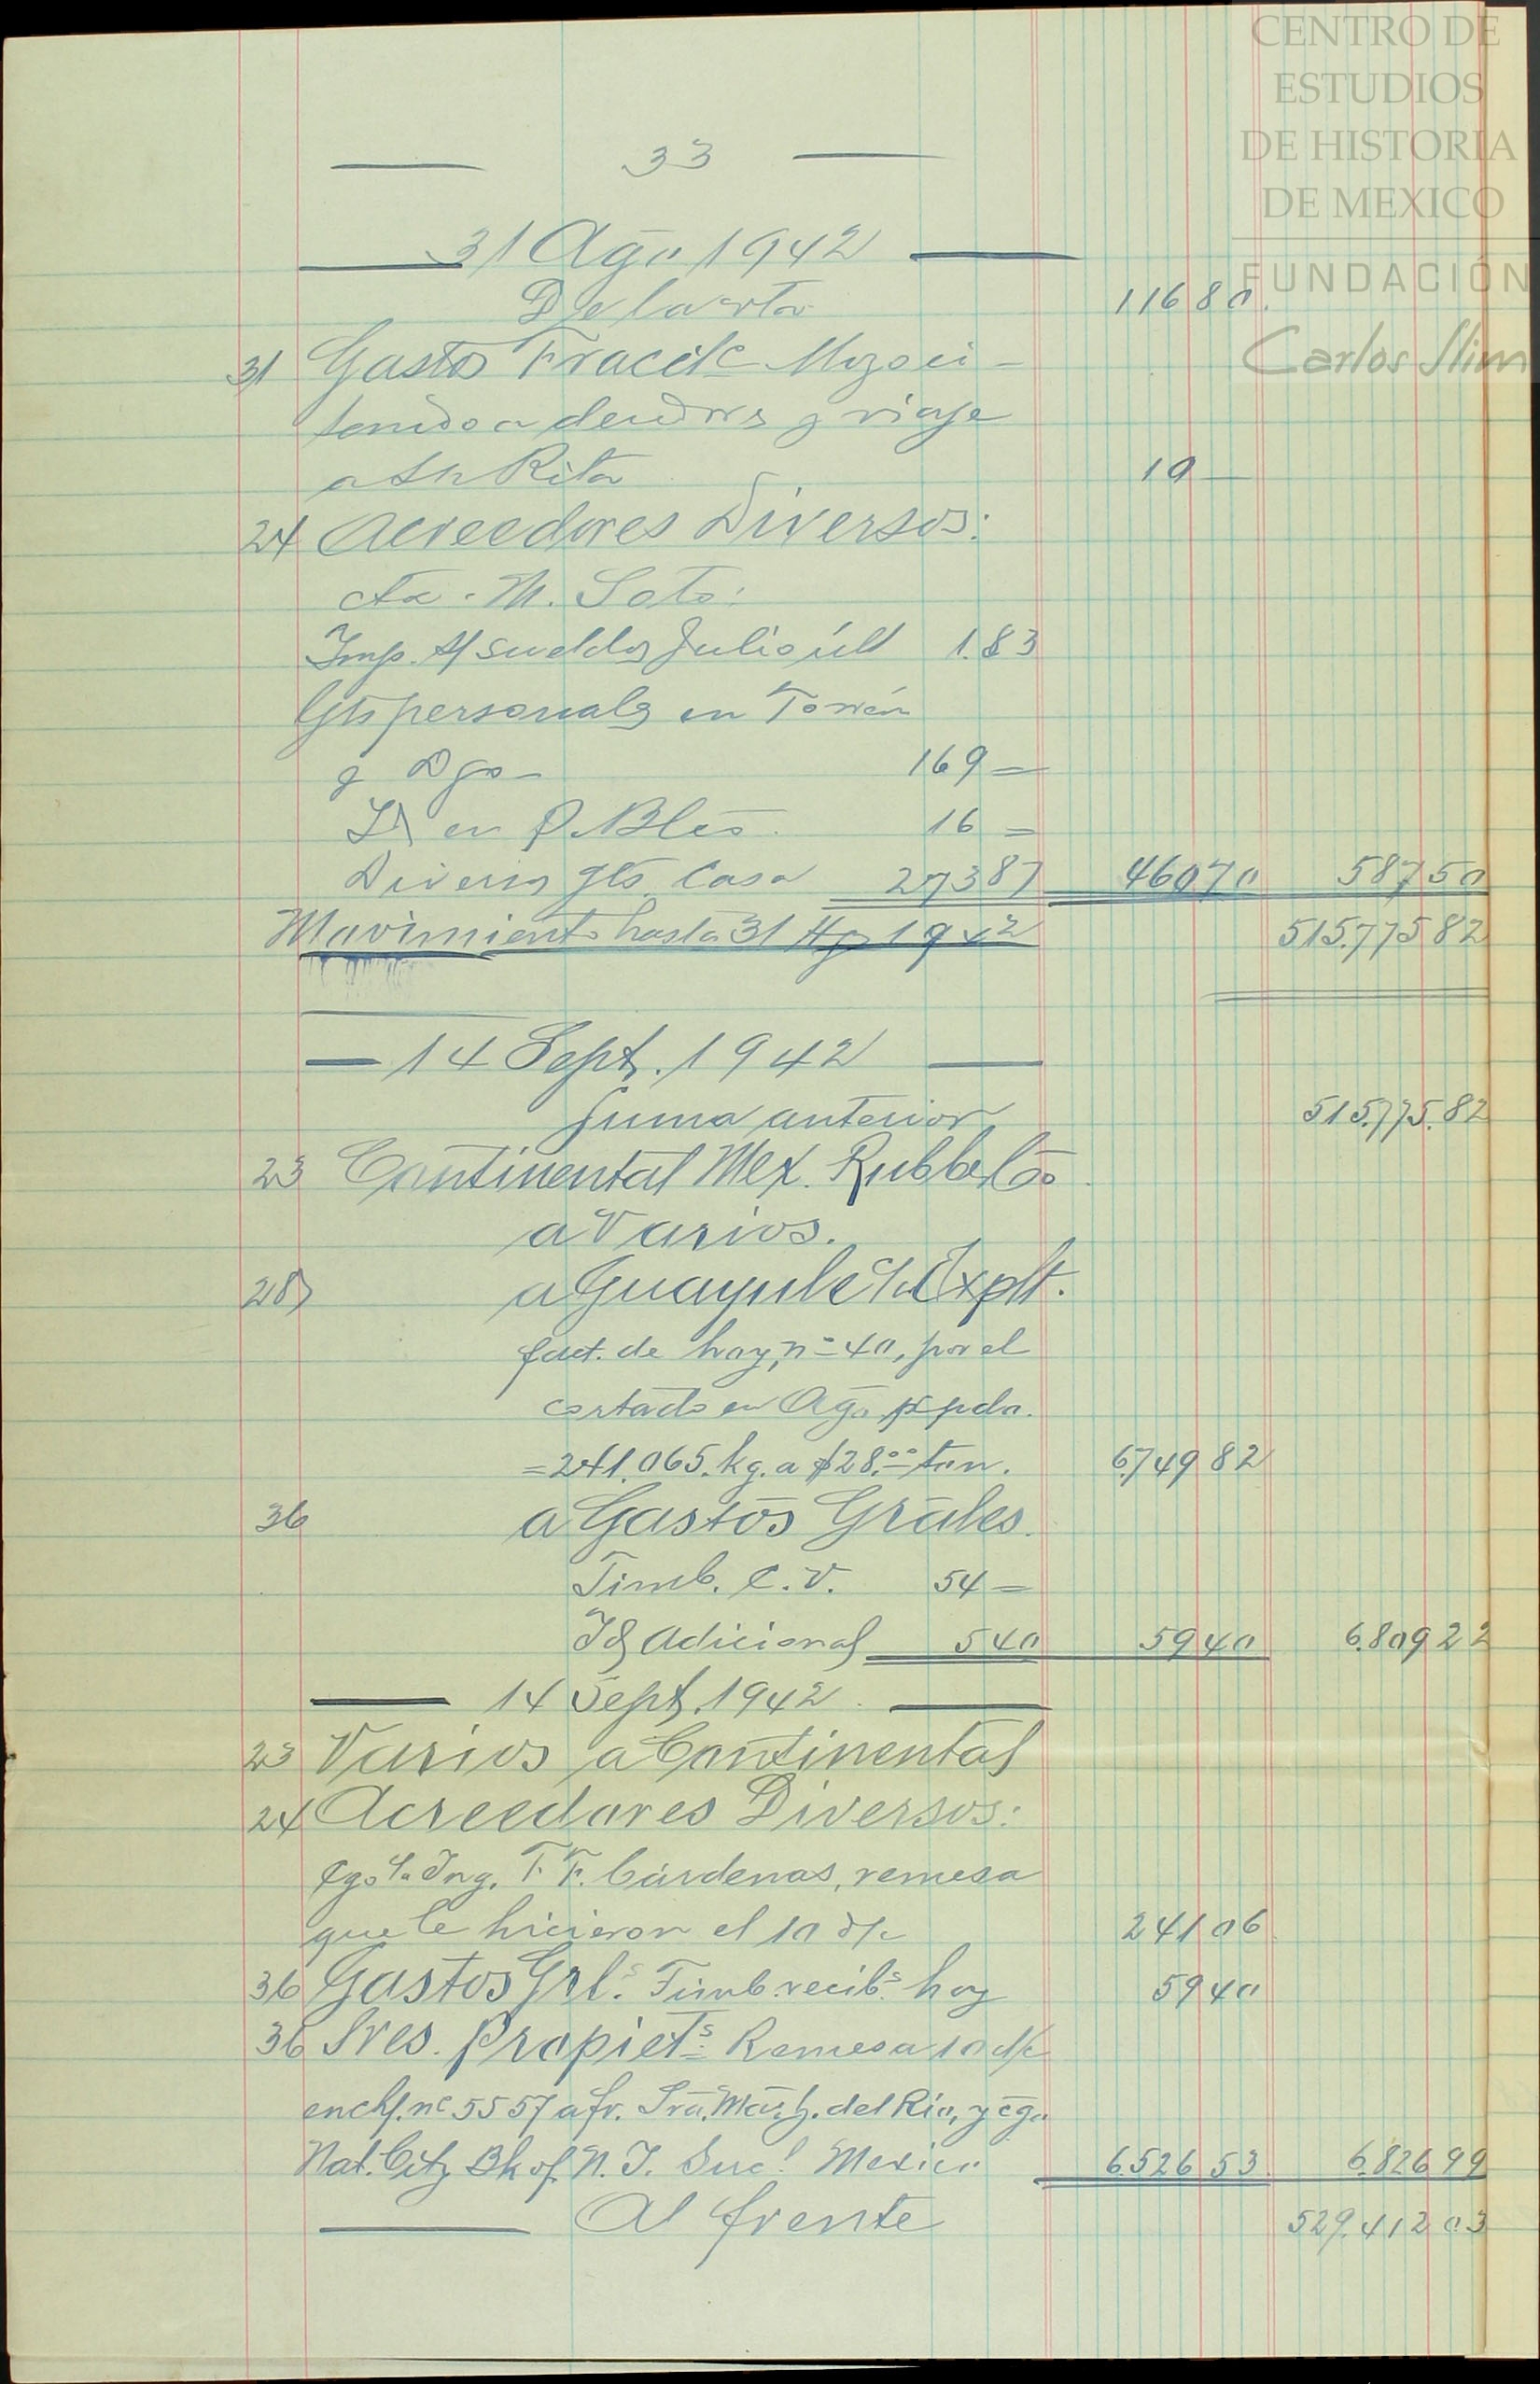 CENTRO DE
ESTUDIOS
DE HISTORIA
DE MEXICO
FUNDACIÓN
Carlos Slim
33
31 Ago 1942
De la vta 116 80
31 Gastos Fracc
y viaje
a Sta Rita 10 —
24 Acreedores Diversos:
cta. M. Soto:
Imp. s/ sueldos Julio últ 1.83
Gts personales en Torreón
y Dgo — 169 =
Id en P. Blcō. 16 =
Diversos gts. Casa 273 87 460 70 587 50
Movimiento hasta 31 Ago 1942 515.775 82
14 Sept. 1942
Suma anterior 515.775.82
23 Continental Mex. Rubber Co.
a Varios.
28 a Guayule c/ Explt.
fact. de hoy, nº 40, por el
cortado en Ago ppdo.
= 241.065. kg. a $28.00 ton. 6.749 82
36 a Gastos Grales.
Timb. C.V. 54 =
Id Adicional 5 40 59 40 6.809 22
14 Sept. 1942.
23 Varios a Continental
24 Acreedores Diversos:
Cgo Ing. F. F. Cárdenas, remesa
que le hicieron el 10 d/c 241 06
36 Gastos Grls. Timb. recibs hoy 59 40
36 Sres. Propiets. Remesa 10 d/c
en ch/. nº 5557 a fv. Sra. Ma. G. del Rio, y cgo
Nat. City Bk of N.Y. Sucl. Mexico 6.526 53 6.826 99
Al frente 529.412 03